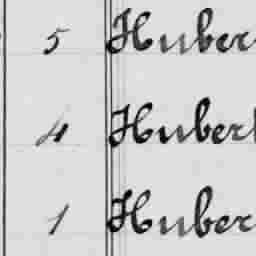 5 Huber
4 Hubert
1 Huber